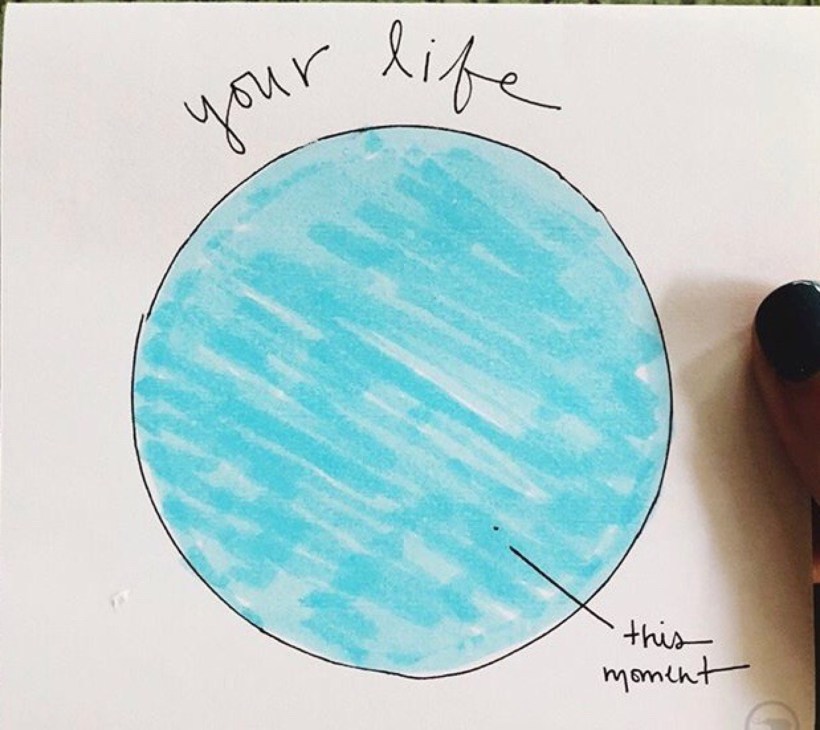 your life
this
moment